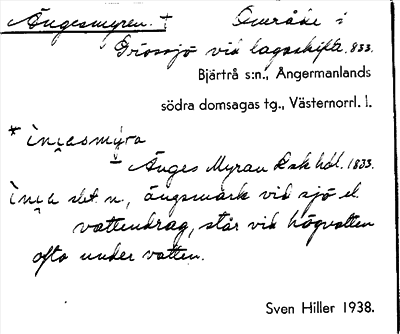 Ängesmyren. † Område i
Driossjö vid lagaskifte. 833.
Bjärtrå s:n., Ångermanlands
södra domsagas tg., Västernorrl. l.
* 
Änges Myran kak hdl. 1833.
slet n., ängsmark vid sjö el.
vattendrag, står vid högvatten
ofta under vatten.
Sven Hiller 1938.